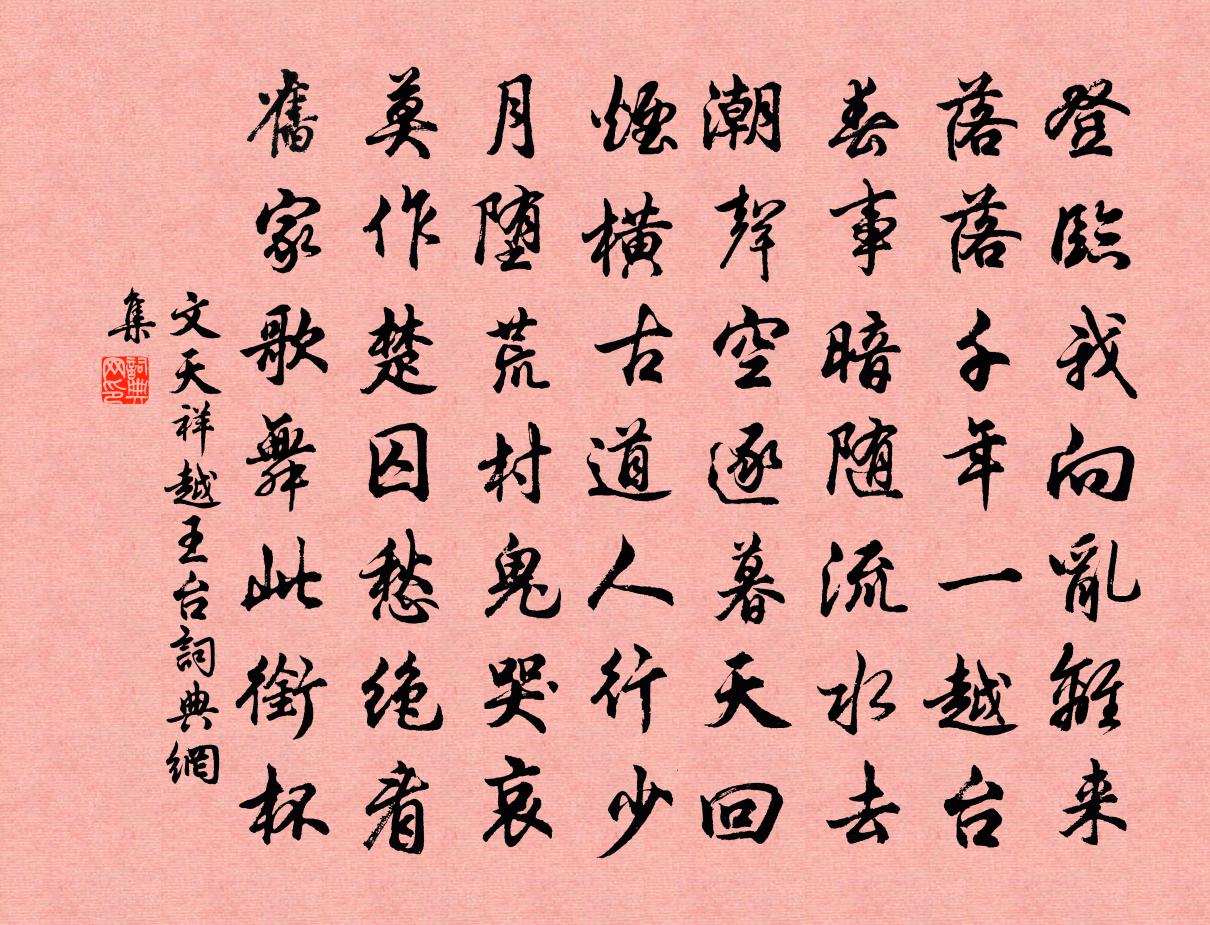 登臨我向亂離来
落落千年一越台
春事暗随流水去
潮聲空逐暮天回
煙横古道人行少
月堕荒村鬼哭哀
莫作楚囚愁绝看
舊家歌舞此銜杯
文天祥越王台詞典網
集
詞典
网印